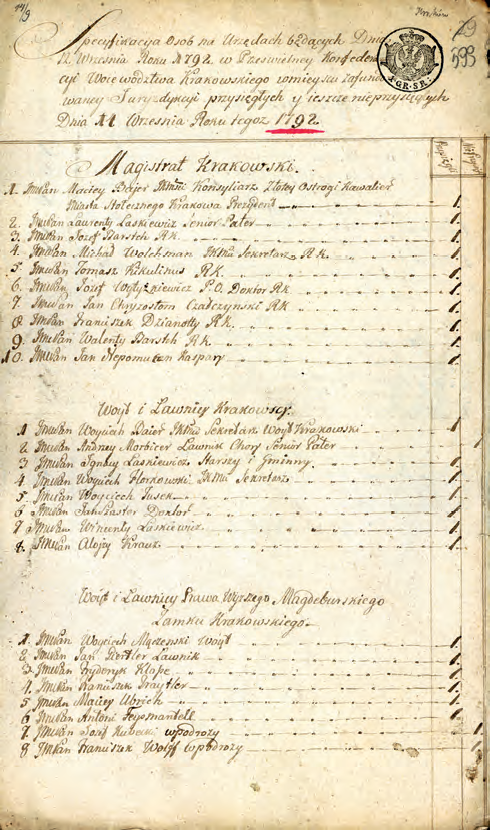 14/9
Specyfikacya Osob na Urzędach będących Dnia
12 Września Roku 1792 w Prześwietney Konfedera
cyi Woiewodztwa Krakowskiego w mieyscu zafundo
waney Juryzdykcyi przysięgłych y ieszcze nieprzysięgłych
Dnia 11 Września Roku tegoż 1792.
593
1 GR. SR.
Magistrat Krakowski.
1. JmćPan Maciey Bajer JKMći Konsyliarz Złotey Ostrogi Kawalier
Miasta Stołecznego Krakowa Prezydent
2. JmćPan Laurenty Laskiewicz Senior Pater
3. JmćPan Jozef Bartsch R.K.
4. JmćPan Michał Wolchsman JKMći Sekretarz R.K.
5 JmćPan Tomasz Kikulinus R.K.
6. JmćPan Jozef Woytyżkiewicz P.O. Doktor R.K
7 JmćPan Jan Chryzostom Czaiczynski R.K
8 JmćPan Franciszek Dzianotty R.K.
9. JmćPan Walenty Bartsch R.K
10. JmćPan Jan Nepomucen Kaspary
Woyt i Ławnicy Krakowscy.
1 JmćPan Woyciech Baier JKMći Sekretarz Woyt Krakowski
2 JmćPan Andrzey Morbicer Ławnik Chory Senior Pater
3 JmćPan Ignacy Laskiewicz Starszy i Gminny
4 JmćPan Woyciech Florkowski JKMći Sekretarz
5 JmćPan Woyciech Jusek
6 JmćPan Jan Pastor Doktor
7 JmćPan Wincenty Laskiewicz
8. JmćPan Aloizy Krauz
Woyt i Ławnicy Prawa Wyższego Magdeburskiego
Zamku Krakowskiego
1. JmćPan Woyciech Męcenski Woyt
2 JmćPan Jan Ławnik
3 JmćPan Fryderyk Klose
4. JmćPan Franciszek Fraytler
5 JmćPan Maciey Ubrich
6 JmćPan Antoni Feysmantell
7 JmćPan Jozef Kubecki w podrozy
8 JmćPan Franciszek Wolff w podrozy